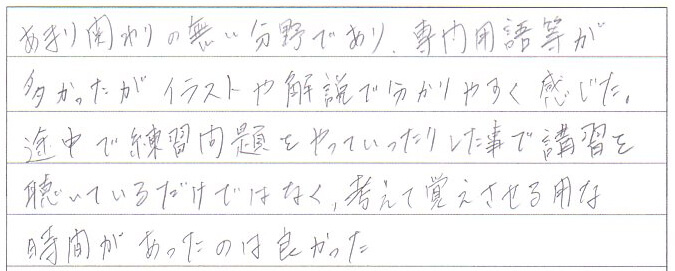 あまり関わりの無い分野であり、専門用語等が
多かったがイラストや解説で分かりやすく感じた。
途中で練習問題をやっていったりした事で講習を
聴いているだけではなく、考えて覚えさせる用な
時間があったのは良かった